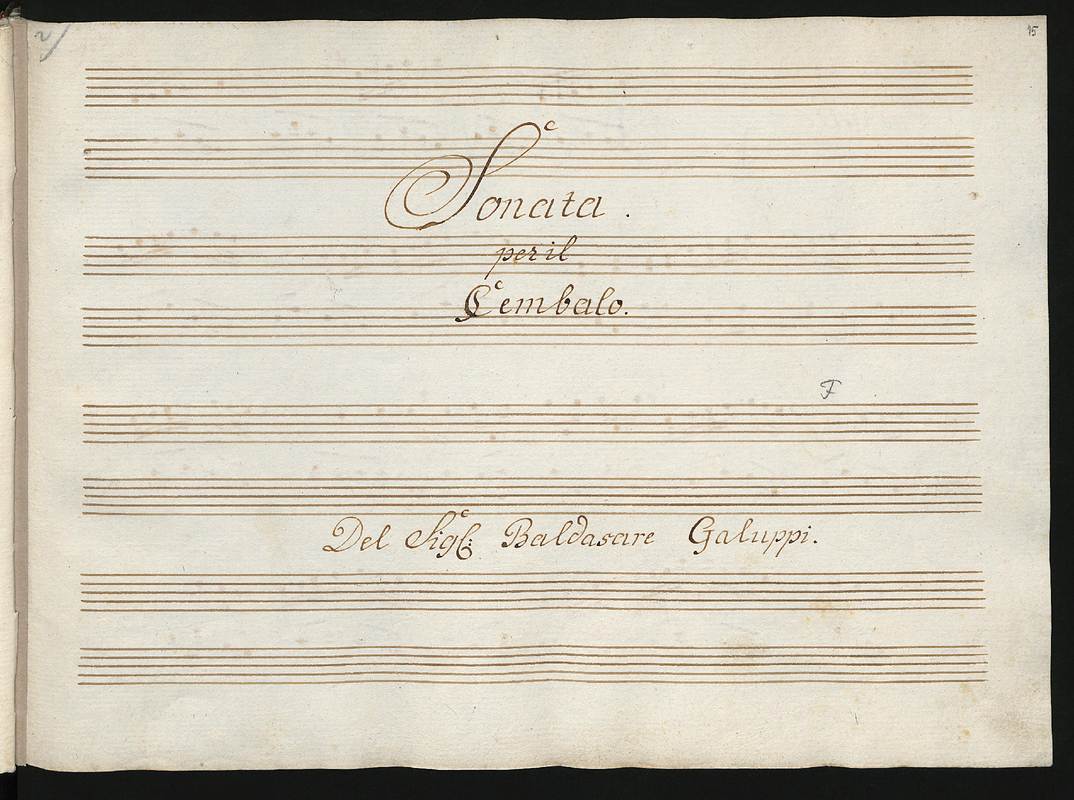 2
15
Sonata.
per il
Cembalo.
F
Del Sigr: Baldasare Galuppi.